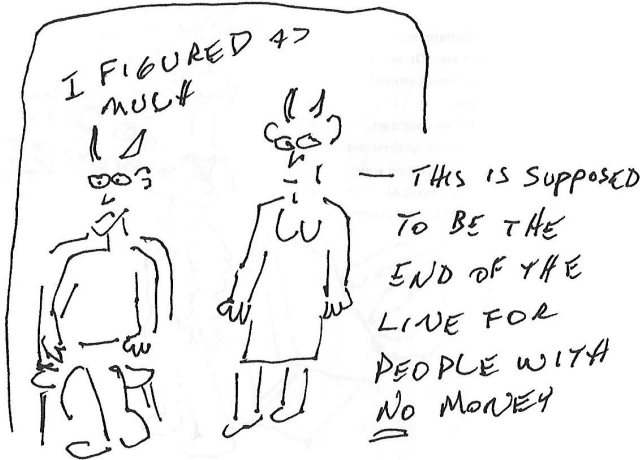 I FIGURED AS
MUCH
— THIS IS SUPPOSED
TO BE THE
END OF THE
LINE FOR
PEOPLE WITH
NO MONEY